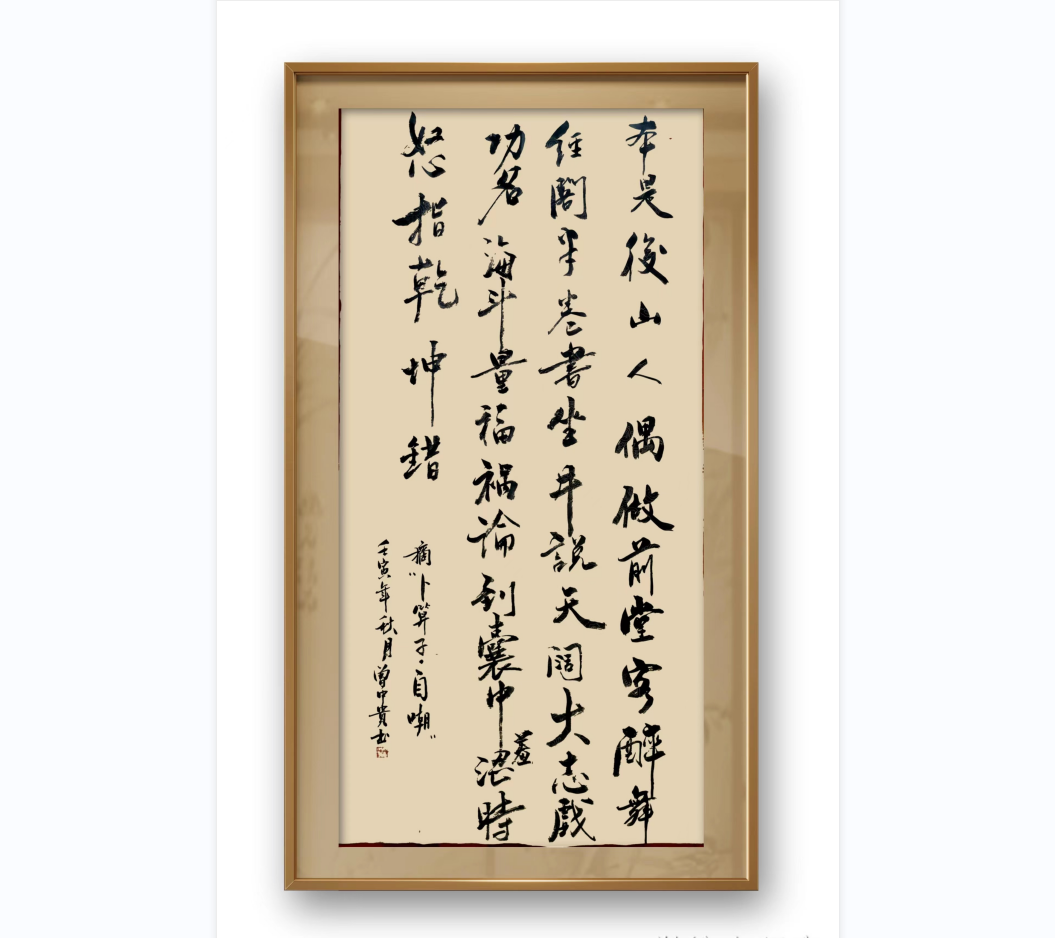 本是後山人偶做前堂客醉舞
经閣半卷書坐井説天阔大志戲
功名海斗量福祸論到囊中羞澀時
怒指乾坤錯
摘"卜算子·自嘲"
壬寅年秋月曾中貴书